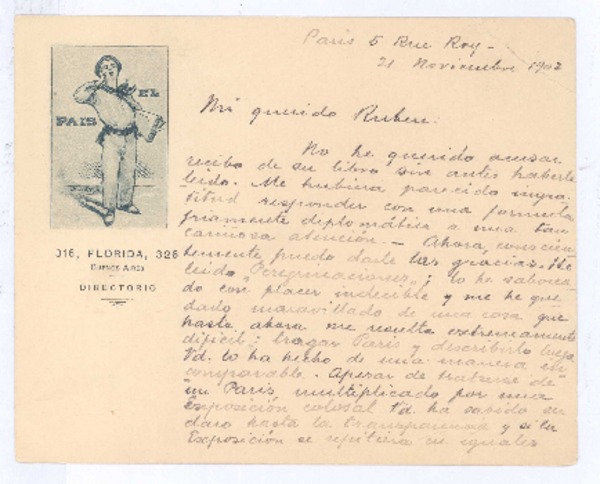 Paris 5 Rue Roy -
21 Noviembre 1902
EL
PAIS
316, FLORIDA, 326
Buenos Aires
DIRECTORIO
Mi querido Ruben:
No he querido acusar
recibo de su libro sin antes haberlo
leido. Me hubiera parecido ingra-
titud responder con una formula
friamente diplomática a una tan
cariñosa atención. - Ahora concien-
temente puedo darle las gracias. He
leido "Peregrinaciones"; lo he saborea-
do con placer indecible y me he que-
dado maravillado de una cosa que
hasta ahora me resulta extremamente
dificil: tragar Paris y describirlo luego
Vd. lo ha hecho de una manera in-
comparable. Apesar de tratarse de
un Paris multiplicado por una
Exposición colosal Vd. ha sabido ser
claro hasta la transparencia y si la
Exposición se repitiera en iguales